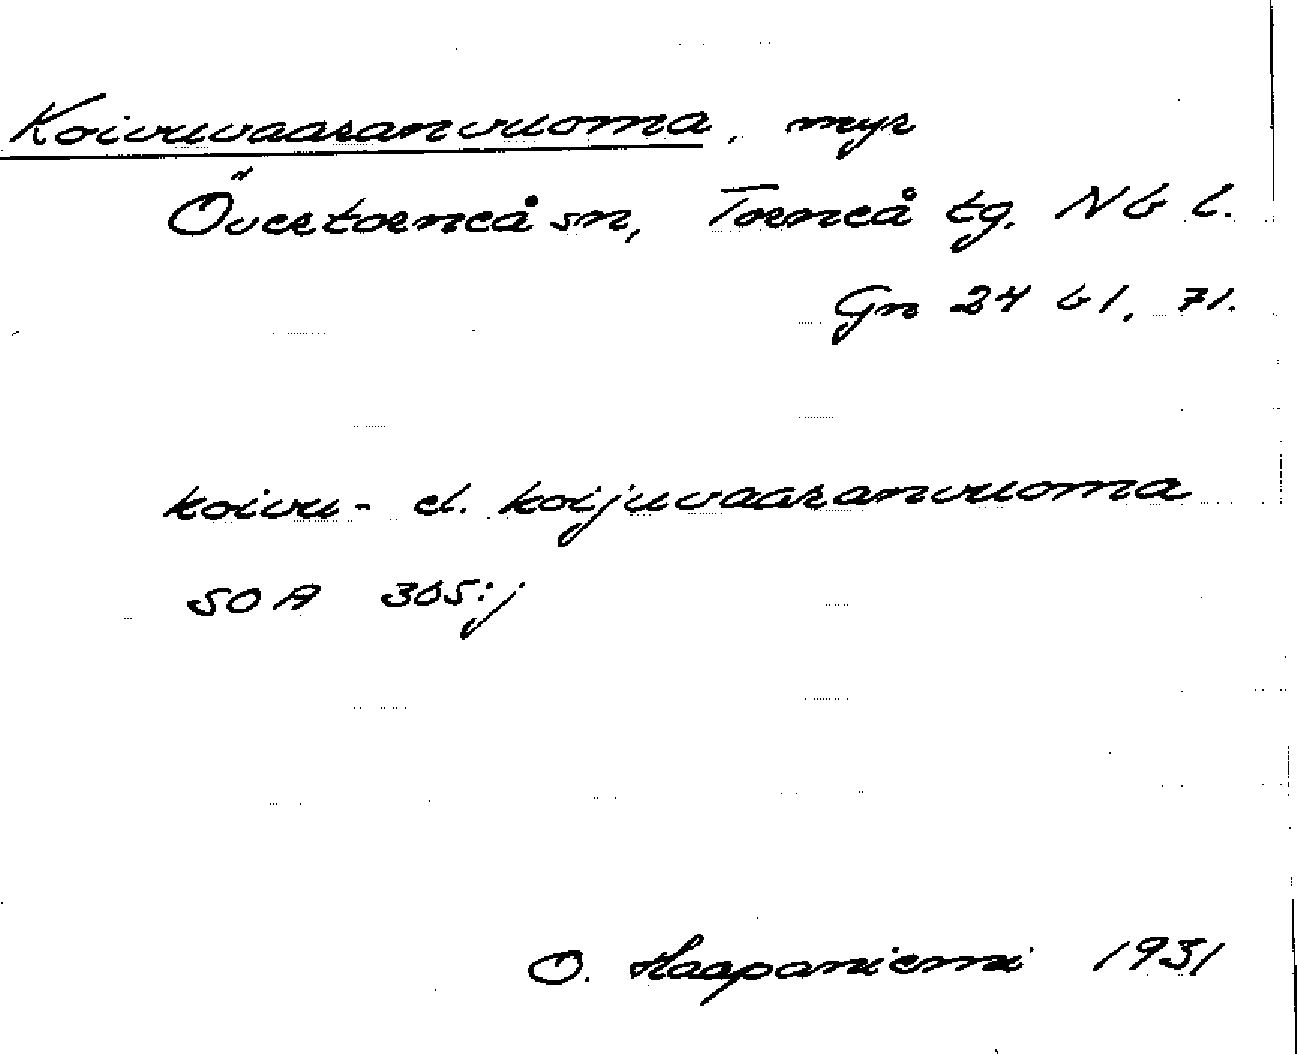 Koivuvaaranvuoma, myr
Övertorneå sn, Torneå tg. Nb l.
Gn 24 bl. 71.
koivu- el. koijuvaaranvuoma
SOA 305:j
O. Haapaniemi 1931